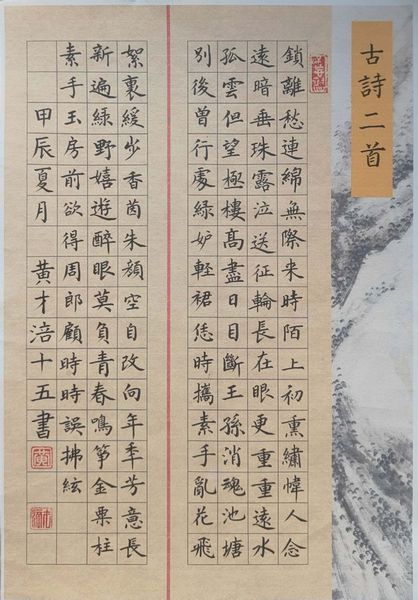 古詩二首
鎖離愁連綿無際來時陌上初熏繡幃人念
遠暗垂珠露泣送征輪長在眼更重重遠水
孤雲但望極樓高盡日目斷王孫消魂池塘
別後曾行處綠妒輕裙恁時攜素手亂花飛
絮裏緩步香茵朱顏空自改向年秊芳意長
新遍綠野嬉遊醉眼莫負青春鳴箏金粟柱
素手玉房前欲得周郎顧時時誤拂絃
甲辰夏月 黃才涪十五書